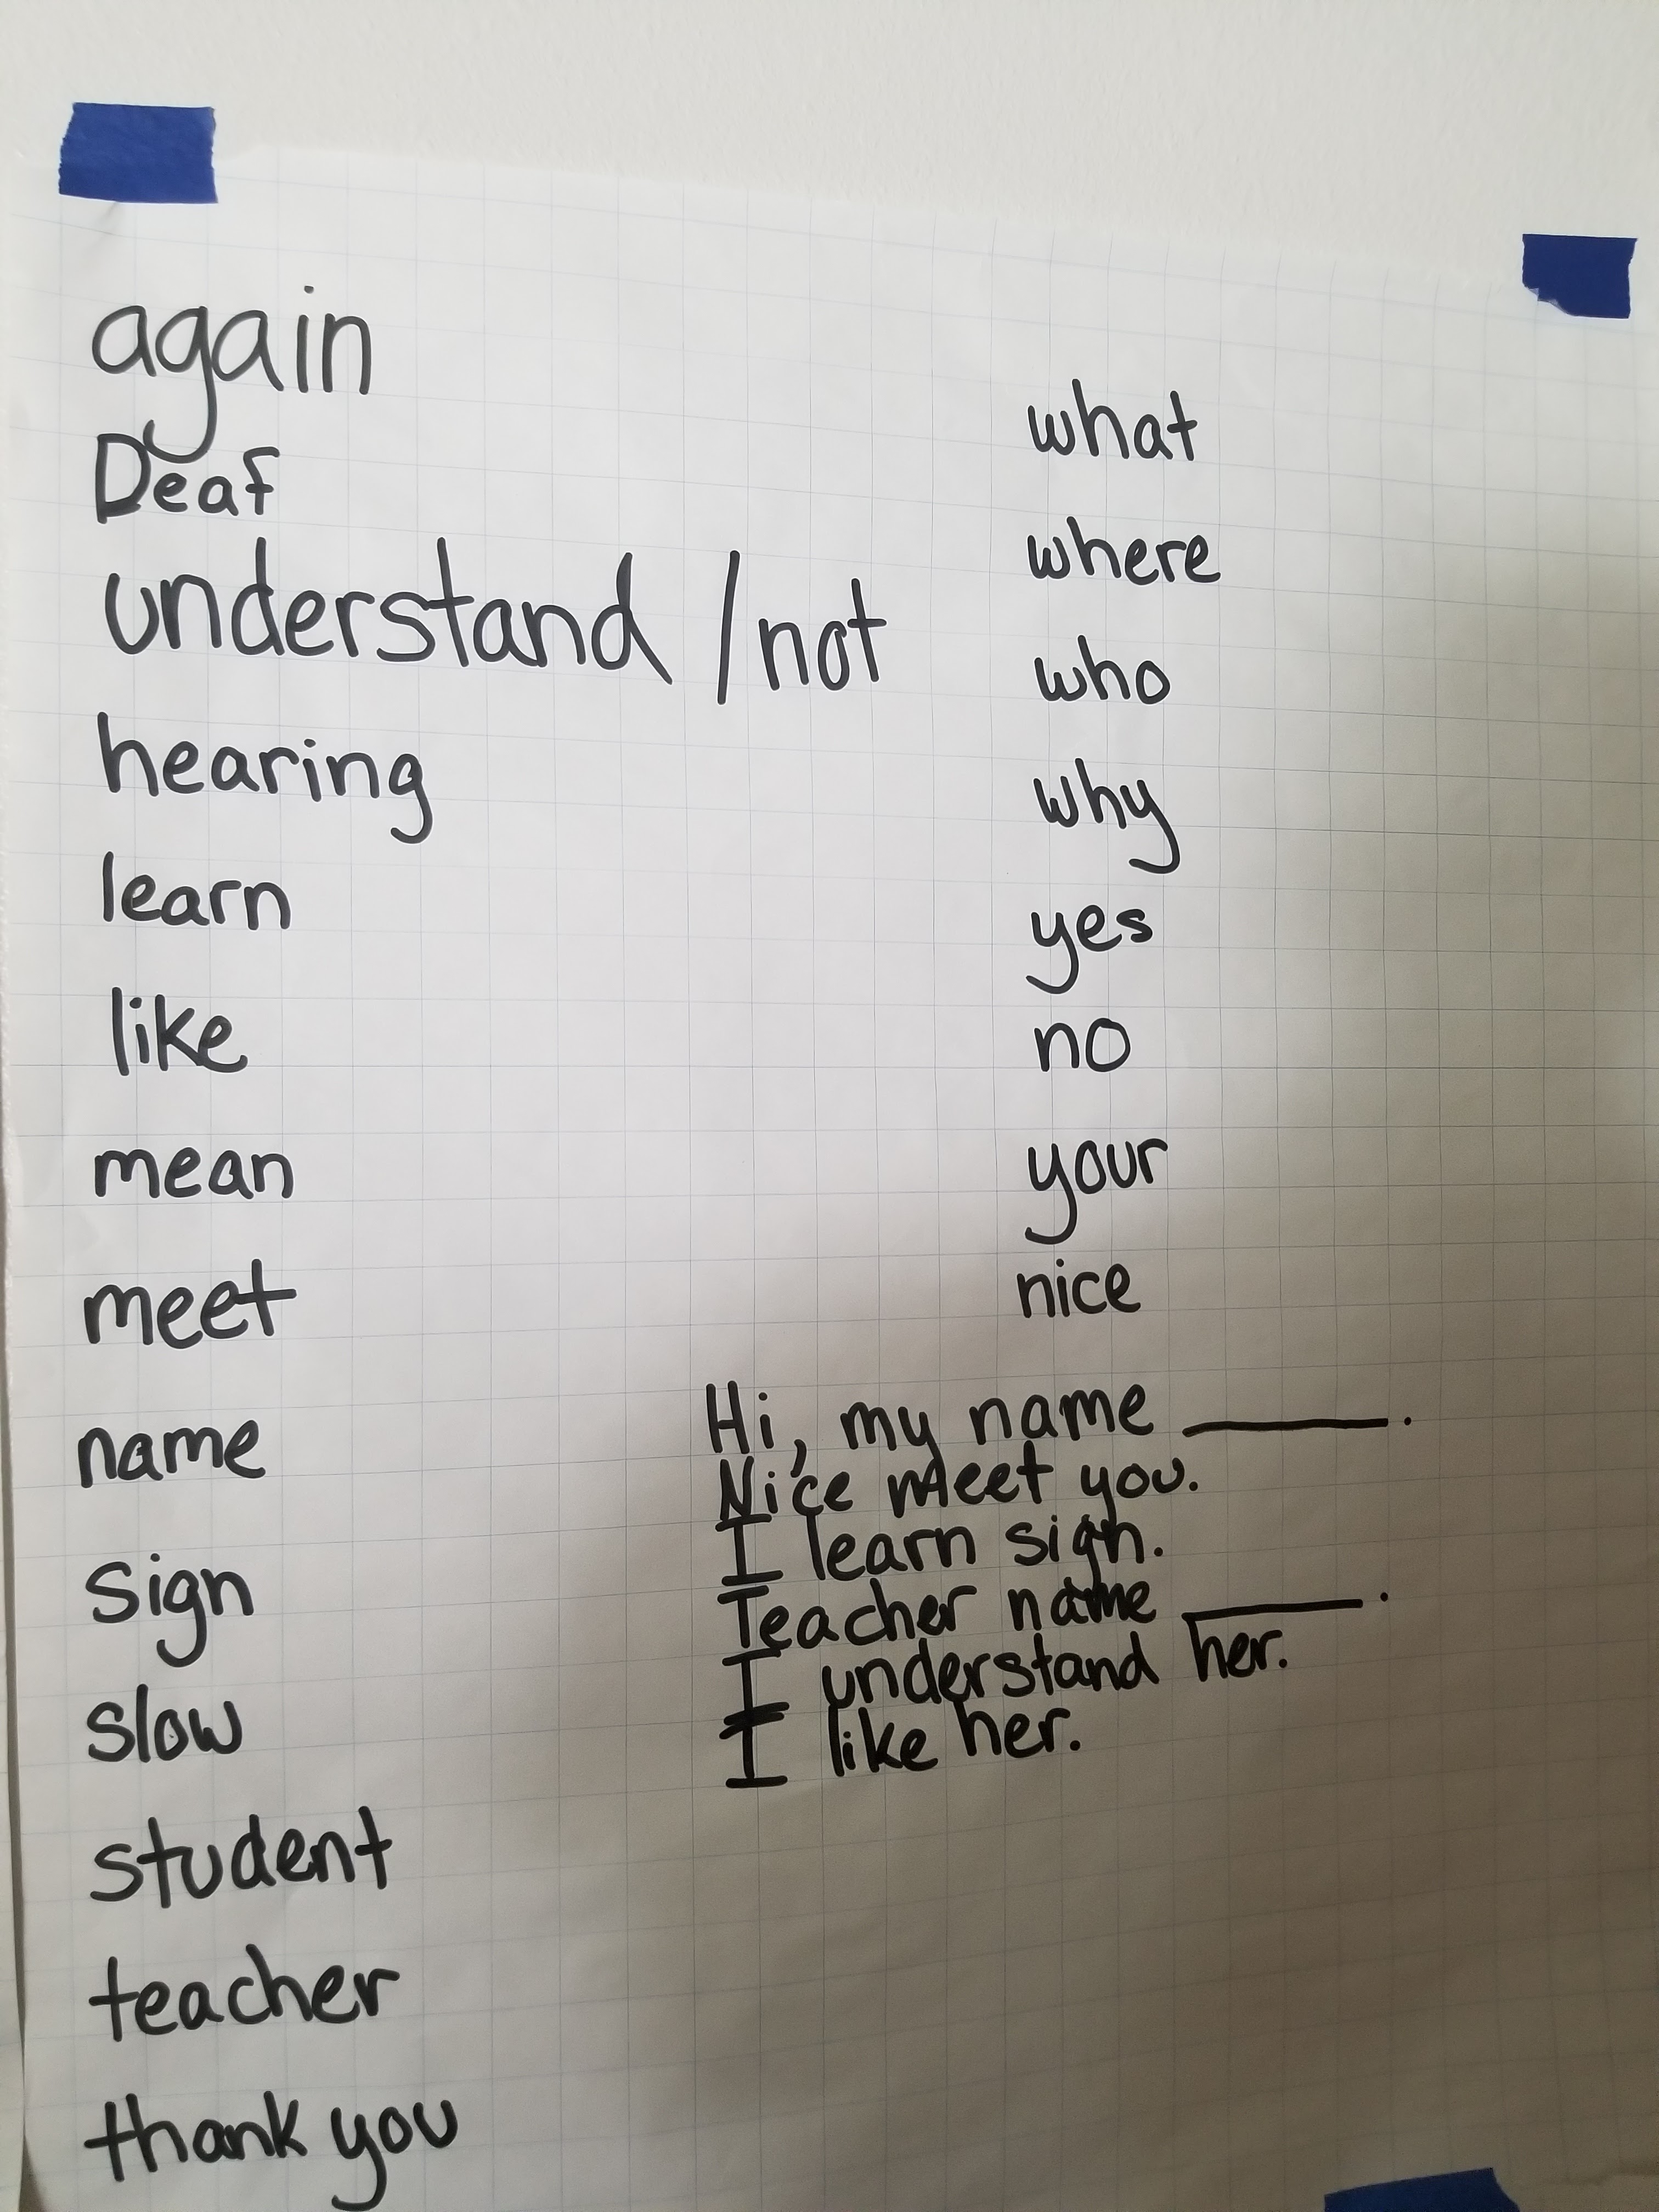 again
Deaf
understand / not
hearing
learn
like
mean
meet
name
sign
slow
student
teacher
thank you
what
where
who
why
yes
no
your
nice
Hi, my name ______.
Nice meet you.
I learn sign.
Teacher name ______.
I understand her.
I like her.